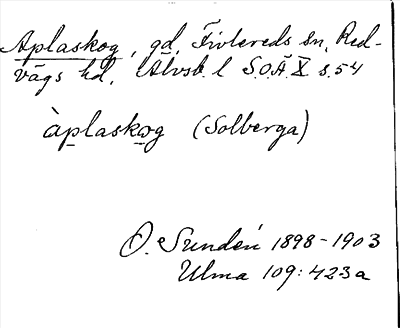 Aplaskog, gd, Fivlereds sn, Red-
vägs hd, Älvsb. l SOÄ X s. 54
àplaskog (Solberga)
D. Sundén 1898-1903
Ulma 109:423a